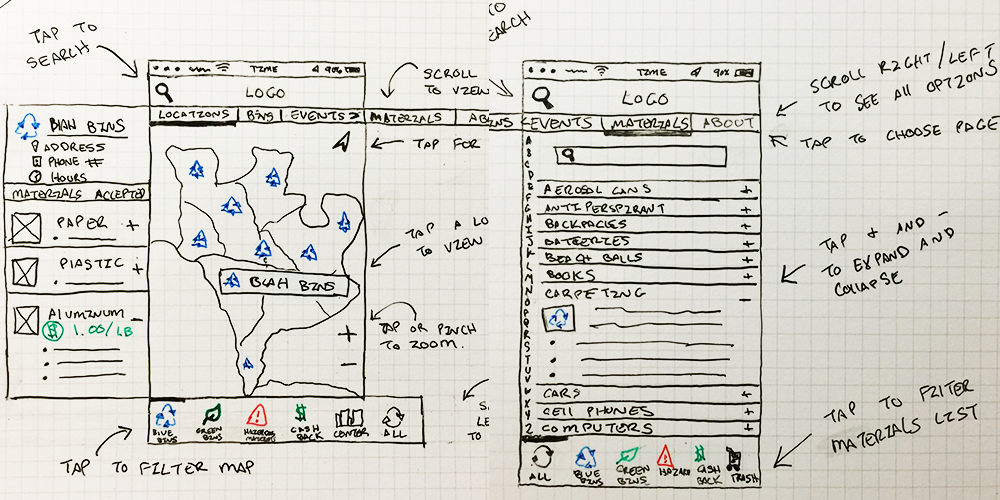 TAP TO
SEARCH
TIME 90%
LOGO
LOCATIONS BINS EVENTS > MATERIALS
BLAH BINS
ADDRESS
PHONE #
HOURS
MATERIALS ACCEPTED
PAPER +
PLASTIC +
ALUMINUM -
$ 1.00/LB
BLAH BINS
+
-
BLUE
BINS
GREEN
BINS
HAZARDOUS
MATERIALS
$
CASH
BACK
CENTER
ALL
TAP TO FILTER MAP
SCROLL
TO VIEW
TAP FOR
TAP A LO
TO VIEW
TAP OR PINCH
TO ZOOM.
TO
EARCH
TIME 90%
LOGO
BINS < EVENTS MATERIALS ABOUT
A
B
C
D
E
F
G
H
I
J
K
L
M
N
O
P
Q
R
S
T
U
V
W
X
Y
Z
AEROSOL CANS +
ANTIPERSPIRANT +
BACKPACKS +
BATTERIES +
BEACH BALLS +
BOOKS +
CARPETING -
CARS +
CELL PHONES +
COMPUTERS +
ALL
BLUE
BINS
GREEN
BINS
HAZARD
$
CASH
BACK
TRASH
SCROLL RIGHT/LEFT
TO SEE ALL OPTIONS
TAP TO CHOOSE PAGE
TAP + AND -
TO EXPAND AND
COLLAPSE
TAP TO FILTER
MATERIALS LIST